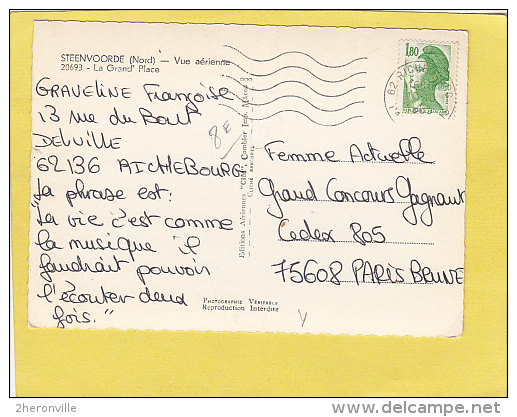 STEENVOORDE (Nord) — Vue aérienne
20693 - La Grand' Place
GRAVELINE Françoise
13 rue du Bout
DELVILLE
62136 RICHEBOURG
La phrase est:
"La vie c'est comme
la musique il
faudrait pouvoir
l'écouter deux
fois."
8€
Editions Aériennes "CIM", Combier Imp. Mâcon
PHOTOGRAPHIE VÉRITABLE
Reproduction Interdite
1,80
62
Femme Actuelle
Grand Concours Gagnant
Cedex 805
75608 PARIS BRUNE
2heronville
delcampe.net